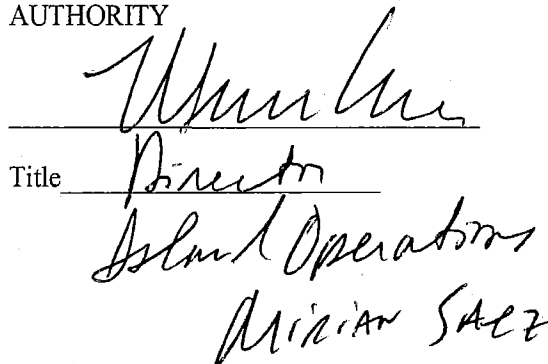 AUTHORITY
Title Director
Island Operations
MIRIAN SAEZ